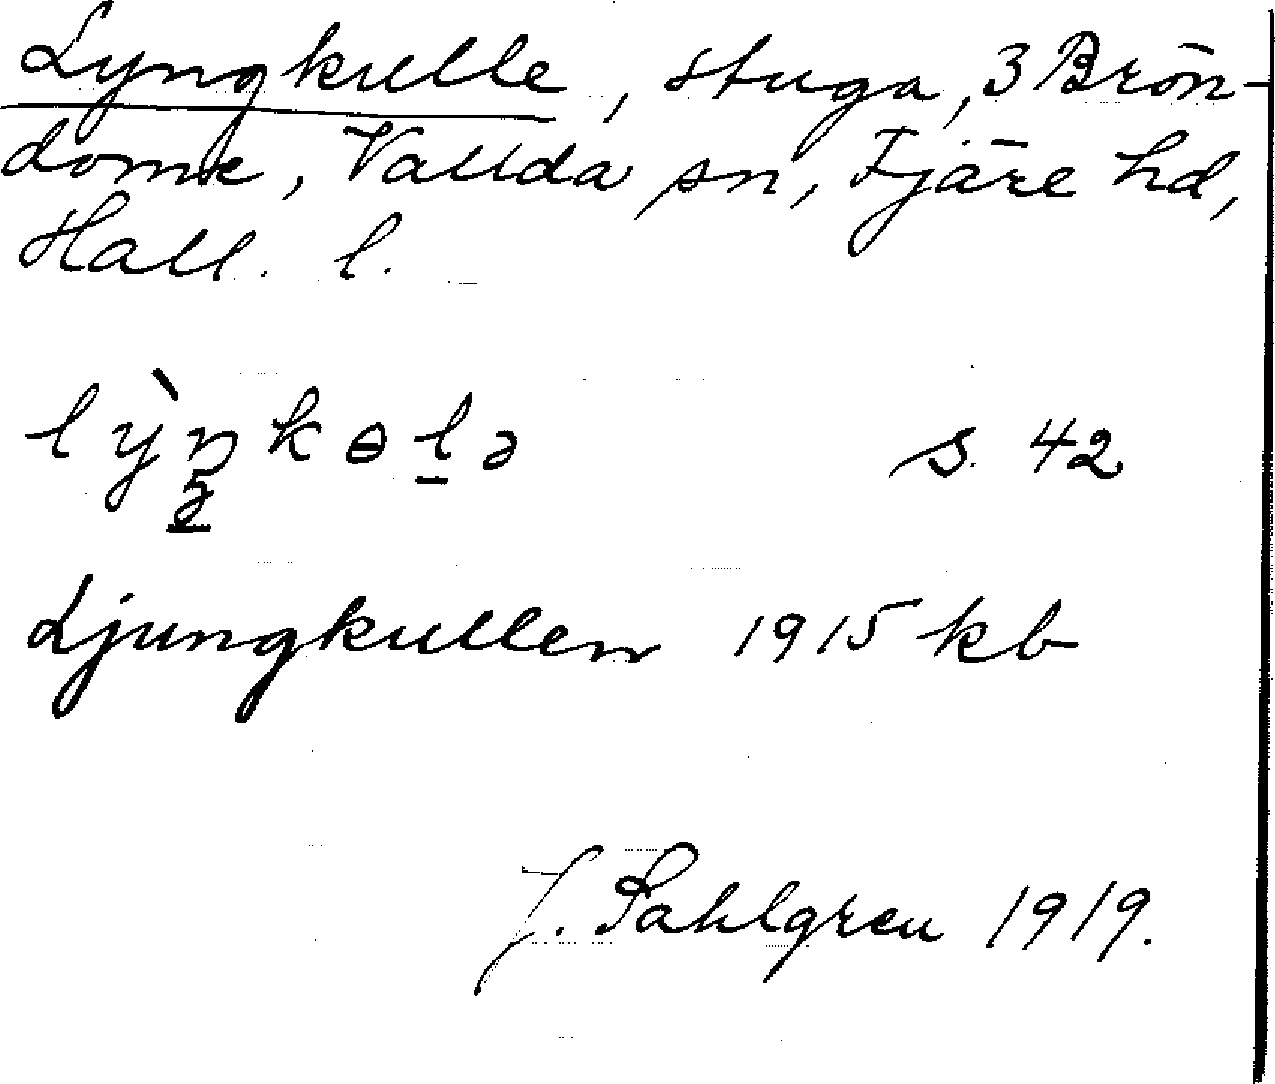 Lyngkulle, stuga, 3 Brön-
dome, Vallda sn, Fjäre hd,
Hall. l.
s. 42
Ljungkullen 1915 kb
J. Sahlgren 1919.